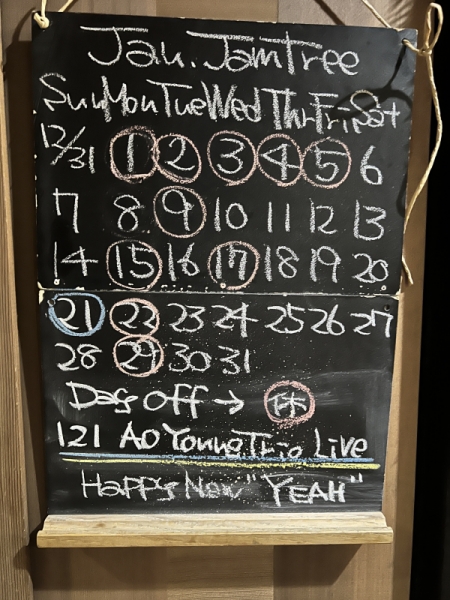 Jan. JamTree
Sun Mon Tue Wed Thr Fri Sat
12/31 1 2 3 4 5 6
7 8 9 10 11 12 13
14 15 16 17 18 19 20
21 22 23 24 25 26 27
28 29 30 31
Day off → 休
121 AO Young Trio Live
Happy New "YEAH"